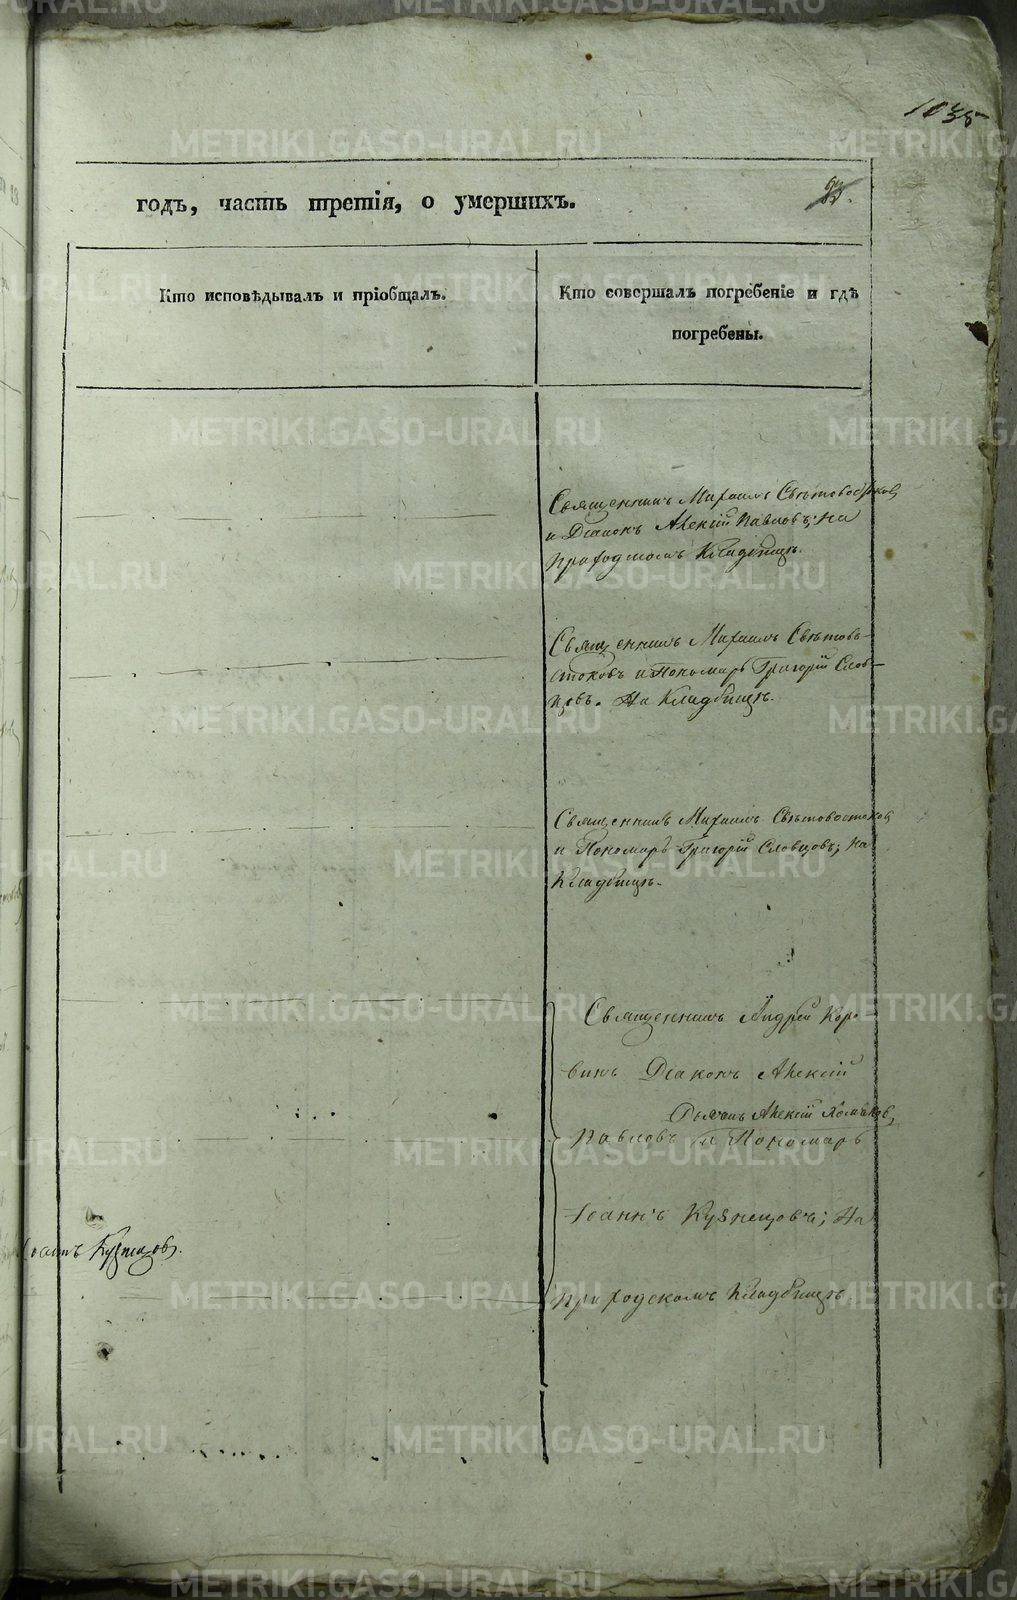 1035
годъ, часть третія, о умершихъ.
23.
Кто исповѣдывалъ и пріобщалъ.
Кто совершалъ погребеніе и гдѣ
погребены.
Священникъ Михаилъ Свѣтовостоковъ
и Діаконъ Алексій Павловъ; на
приходскомъ Кладбищѣ.
Священникъ Михаилъ Свѣтово-
стоковъ и Пономарь Григорій Слов-
цовъ. На Кладбищѣ.
Священникъ Михаилъ Свѣтовостоковъ
и Пономарь Григорій Словцовъ; на
Кладбищѣ.
Священникъ Андрей Коро-
винъ Діаконъ Алексій
Алексій
Павловъ и Пономарь
Іоаннъ Кузнецовъ; На
Іоаннъ Кузнецовъ.
приходскомъ Кладбищѣ.
METRIKI.GASO-URAL.RU